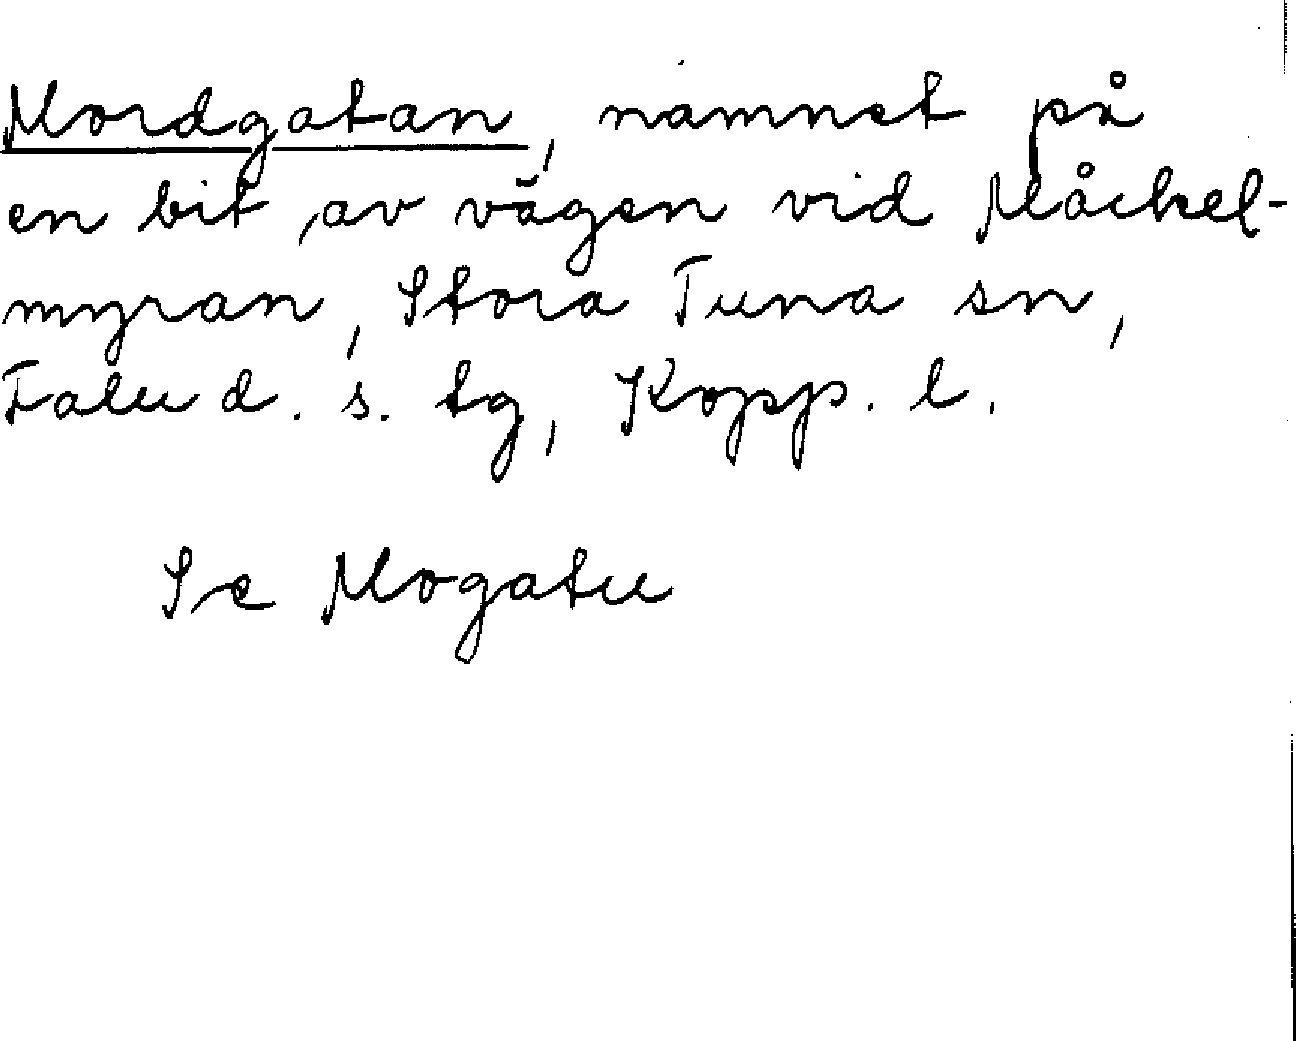 Mordgatan, namnet på
en bit av vägen vid Måckel-
myran, Stora Tuna sn,
Falu d. s. tg, Kopp. l.
Se Mogatu